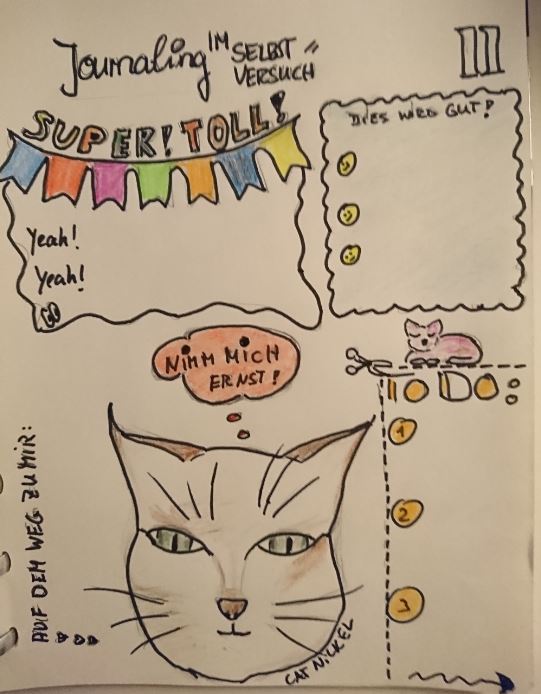 Journaling IM SELBST
VERSUCH
II
SUPER! TOLL!
Yeah!
Yeah!
DIES WIRD GUT!
NIMM MICH
ERNST!
TO DO:
1
2
3
AUF DEM WEG ZU MIR:
CAT NICKEL